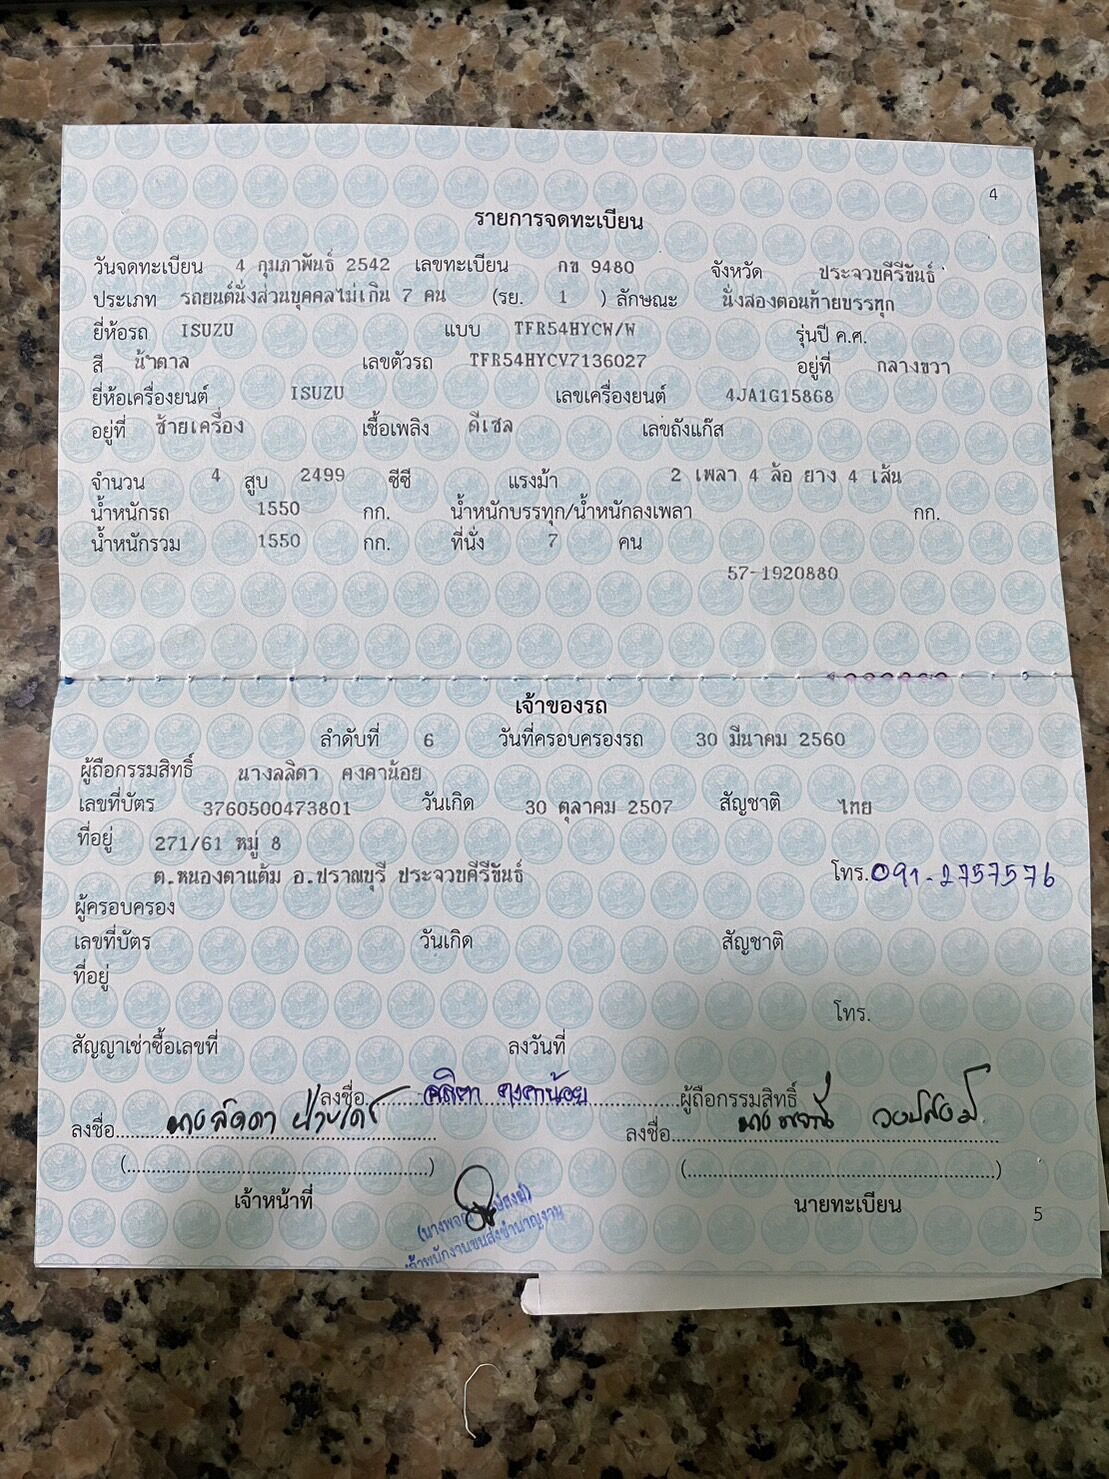 4
รายการจดทะเบียน
วันจดทะเบียน 4 กุมภาพันธ์ 2542 เลขทะเบียน กข 9480 จังหวัด ประจวบคีรีขันธ์
ประเภท รถยนต์นั่งส่วนบุคคลไม่เกิน 7 คน (รย. 1 ) ลักษณะ นั่งสองตอนท้ายบรรทุก
ยี่ห้อรถ ISUZU แบบ TFR54HYCW/W รุ่นปี ค.ศ.
สี น้ำตาล เลขตัวรถ TFR54HYCV7136027 อยู่ที่ กลางขวา
ยี่ห้อเครื่องยนต์ ISUZU เลขเครื่องยนต์ 4JA1G15868
อยู่ที่ ซ้ายเครื่อง เชื้อเพลิง ดีเซล เลขถังแก๊ส
จำนวน 4 สูบ 2499 ซีซี แรงม้า 2 เพลา 4 ล้อ ยาง 4 เส้น
น้ำหนักรถ 1550 กก. น้ำหนักบรรทุก/น้ำหนักลงเพลา กก.
น้ำหนักรวม 1550 กก. ที่นั่ง 7 คน
57-1920880
เจ้าของรถ
ลำดับที่ 6 วันที่ครอบครองรถ 30 มีนาคม 2560
ผู้ถือกรรมสิทธิ์ นางลลิตา คงคาน้อย
เลขที่บัตร 3760500473801 วันเกิด 30 ตุลาคม 2507 สัญชาติ ไทย
ที่อยู่ 271/61 หมู่ 8
ต.หนองตาแต้ม อ.ปราณบุรี ประจวบคีรีขันธ์ โทร. 091-2757576
ผู้ครอบครอง
เลขที่บัตร วันเกิด สัญชาติ
ที่อยู่
โทร.
สัญญาเช่าซื้อเลขที่ ลงวันที่
ลงชื่อ ลลิตา คงคาน้อย ผู้ถือกรรมสิทธิ์
ลงชื่อ ลงชื่อ
(........................................) (........................................)
เจ้าหน้าที่ นายทะเบียน
5